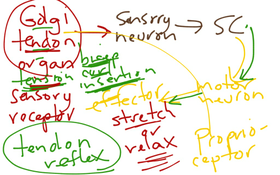 Golgi
tendon
organ
tension
sensory
receptor
bicep
curl
insertion
Sensory
neuron
SC
effector
motor
neuron
stretch
or
relax
Proprio-
ceptor
tendon
reflex